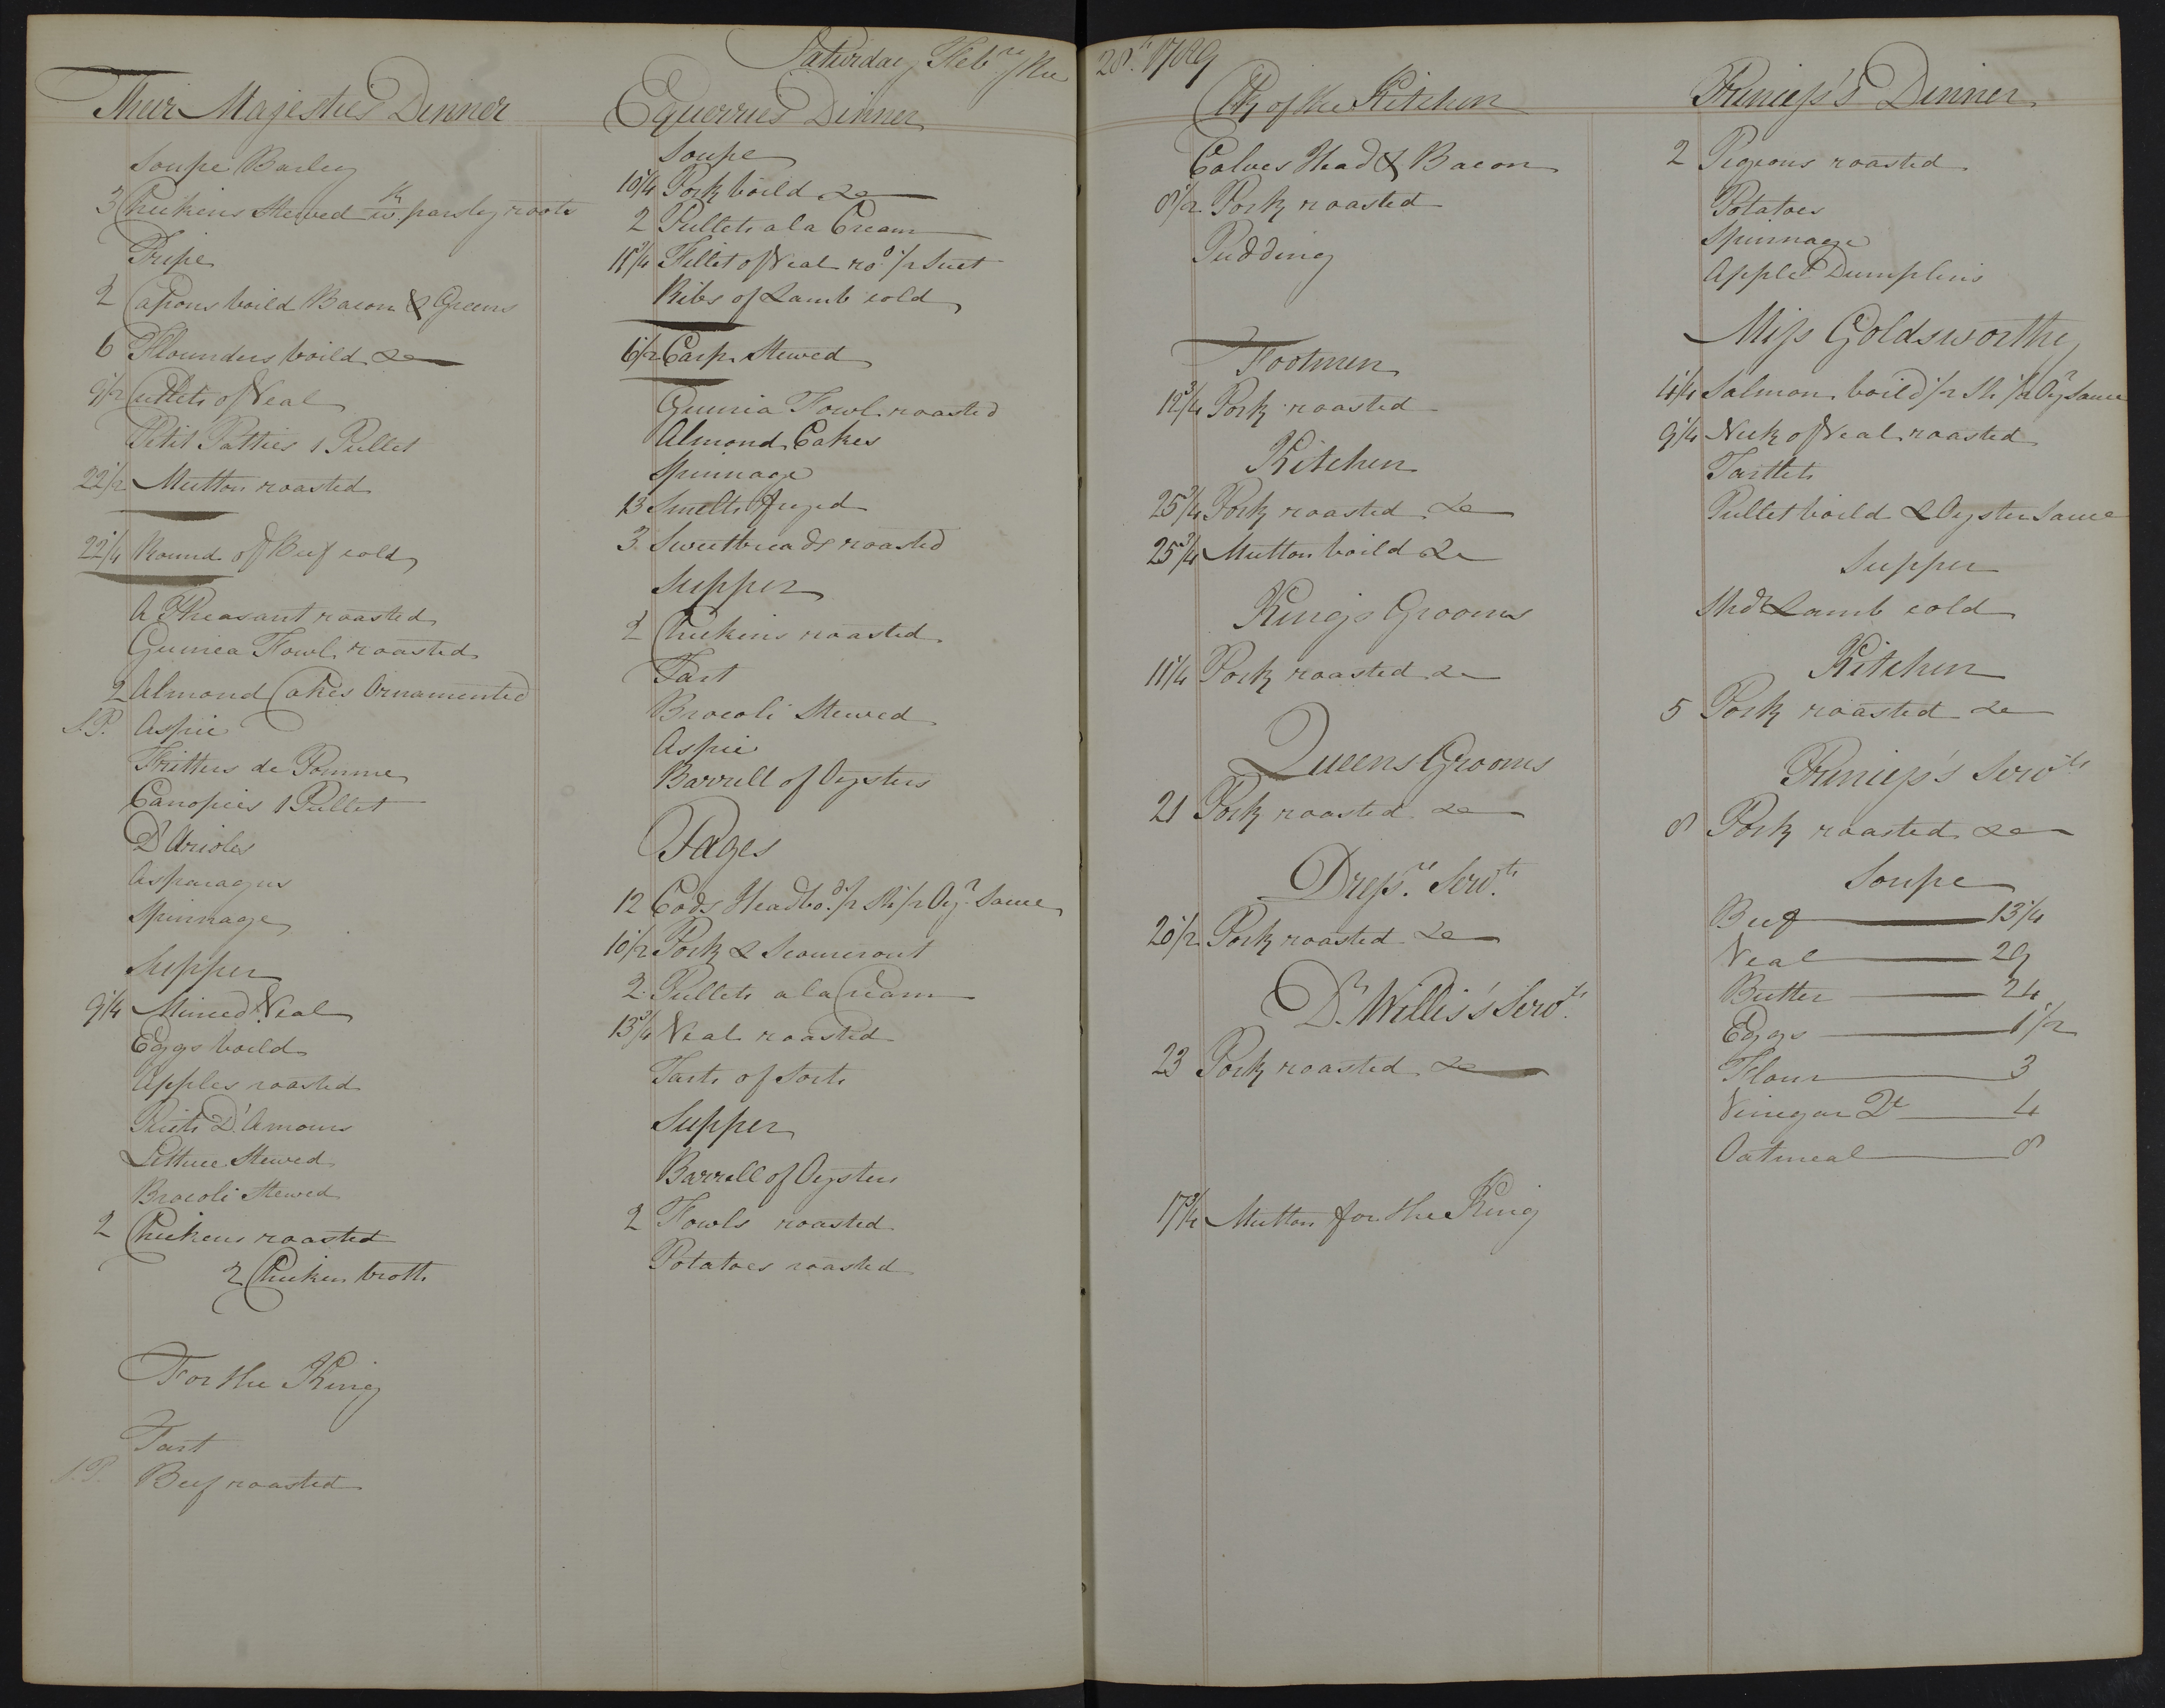 Saturday Feb.ry the 28.th 1789
Their Majesties Dinner
Soupe Barley
3 Chickens Stewed w.th parsley roots
Tripe
2 Capons boild Bacon & Greens
6 Flounders boild &c
9 1/2 Cutlets of Veal
Petit Patties 1 Pullet
22 1/2 Mutton roasted
22 1/4 Round of Beef cold
A Pheasant roasted
Guinea Fowl roasted
2 Almond Cakes Ornamented
S.P. Aspic
Fritters de Pomme
Canopies 1 Pullet
D'Arioles
Asparagus
Spinnage
Supper
9 1/4 Minced Veal
Eggs boild
Apples roasted
Puits D'Amours
Lettuce Stewed
Brocoli Stewed
2 Chickens roasted
2 Chicken broth
For the King
Tart
S.P. Beef roasted
Equerries Dinner
Soupe
10 1/4 Pork boild &c
2 Pullets a la Cream
11 3/4 Fillet of Veal ro.d 1/2 Suet
Ribs of Lamb cold
6 1/2 Carp Stewed
Guinia Fowl roasted
Almond Cakes
Spinnage
13 Smelts fryed
3 Sweetbreads roasted
Supper
2 Chickens roasted
Tart
Brocoli Stewed
Aspic
Barrell of Oysters
Pages
12 Cods Head bo.d 1/2 Sh 1/2 Oy.r Sauce
10 1/2 Pork & Scourcrout
2 Pullets a la Cream
13 3/4 Veal roasted
Tarts of Sorts
Supper
Barrell of Oysters
2 Fowls roasted
Potatoes roasted
Clk of the Kitchen
Calves Head & Bacon
8 1/2 Pork roasted
Pudding
Footmen
12 3/4 Pork roasted
Kitchen
25 3/4 Pork roasted &c
25 3/4 Mutton boild &c
Kings Grooms
11 1/4 Pork roasted &c
Queens Grooms
21 Pork roasted &c
Dress.rs Serv.ts
20 1/2 Pork roasted &c
D.r Willis's Serv.ts
23 Pork roasted &c
17 3/4 Mutton for the King
Princess's Dinner
2 Pigeons roasted
Potatoes
Spinnage
Apple Dumplins
Miss Goldsworthy
4 1/4 Salmon boild 1/2 Sh 1/2 Oy.r Sauce
9 1/4 Neck of Veal roasted
Tartlets
Pullet boild & Oyster Sauce
Supper
Sho.r Lamb cold
Kitchen
5 Pork roasted &c
Princess's Serv.ts
8 Pork roasted &c
Soupe
Beef 13 1/4
Veal 29
Butter 24
Eggs 1 1/2
Flour 3
Vinegar Qt 4
Oatmeal 8